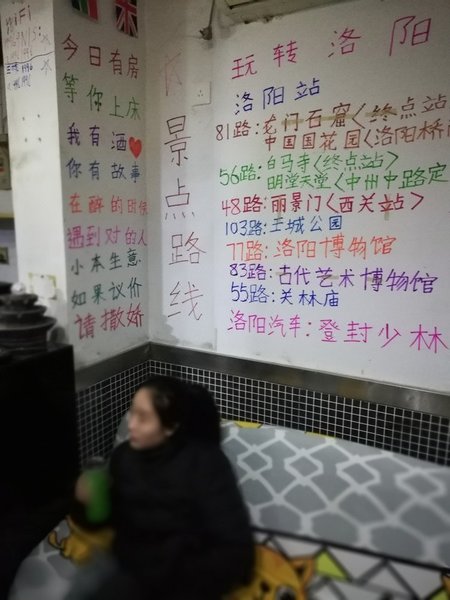 WiFi
今日有房
等你上床
我有酒❤
你有故事
在醉的时候
遇到对的人
小本生意
如果议价
请撒娇
景点路线
玩转洛阳
洛阳站
81路:龙门石窟<终点站
中国国花园<洛阳桥南
56路:白马寺<终点站>
明堂天堂<中州中路定
48路:丽景门<西关站>
103路:王城公园
77路:洛阳博物馆
83路:古代艺术博物馆
55路:关林庙
洛阳汽车:登封少林